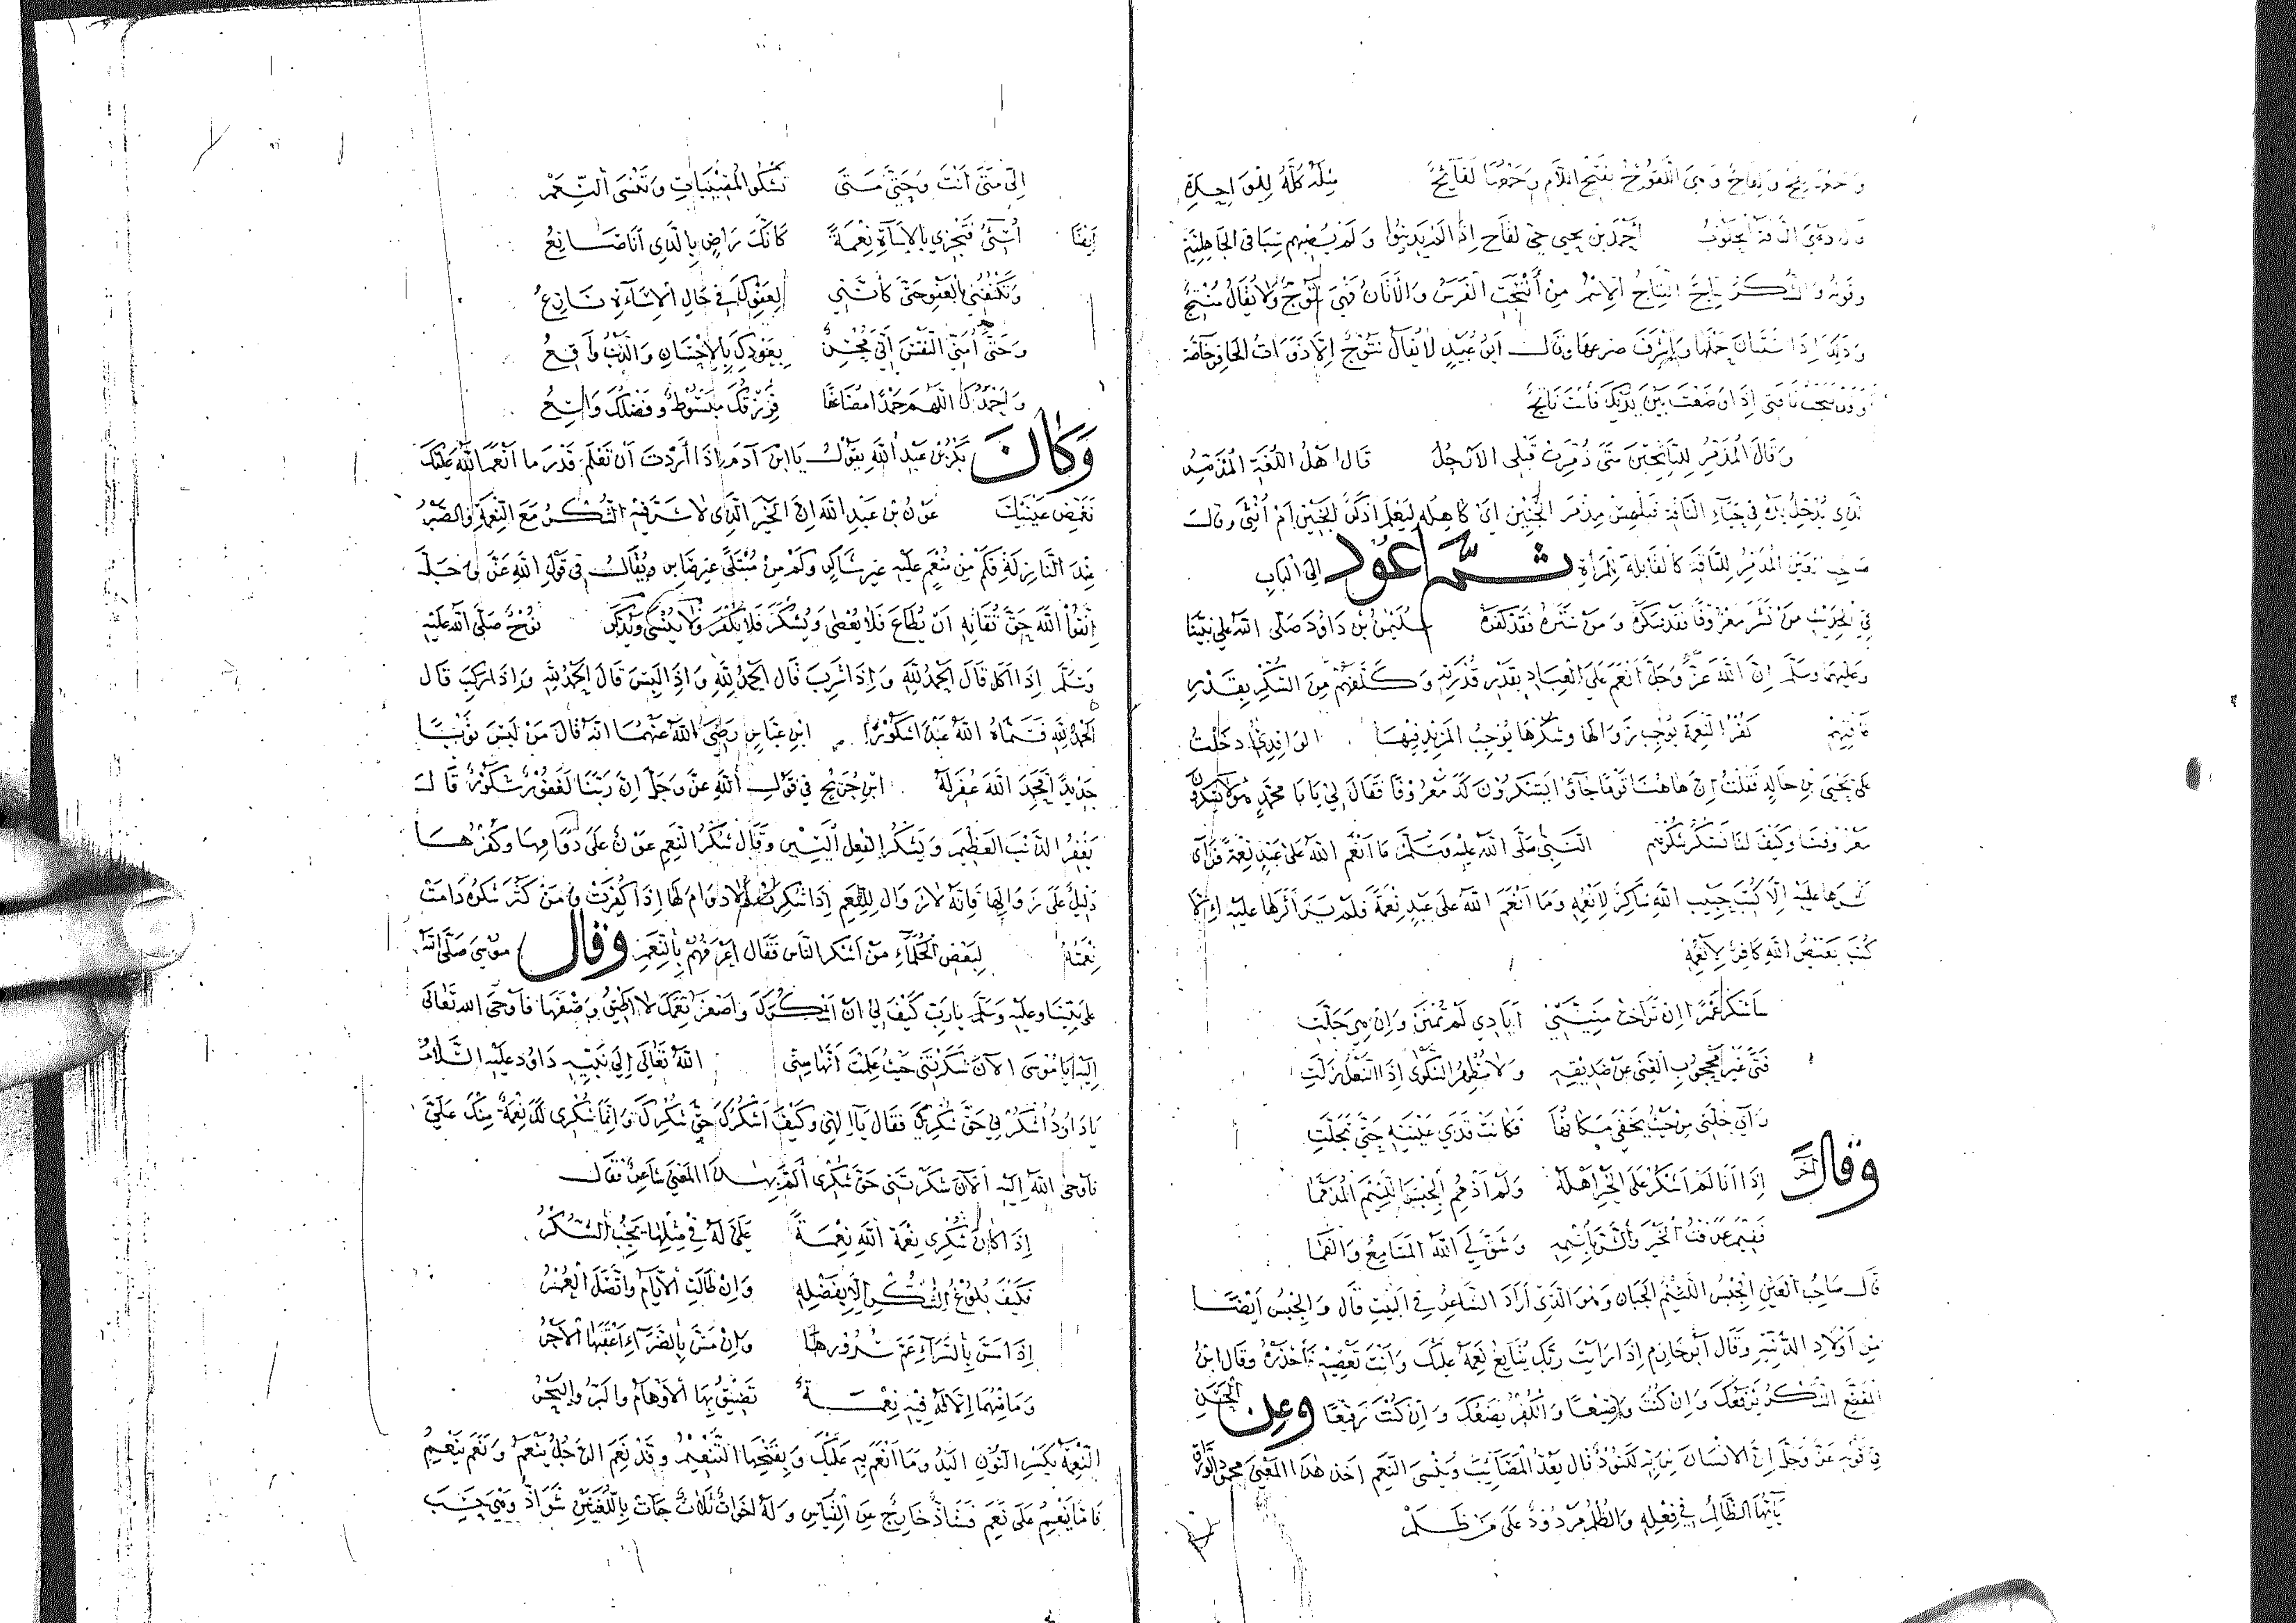 وجمعه لقح ولقاح وهي اللقوح بفتح اللام وجمعها لقائح مثله كله للواحدة
الناقة الحلوب أحمد بن يحيى حي لقاح إذا لم يدينوا ولم يصبهم سباء في الجاهلية
وقوله والشكر نتاج النتاج الاسم من أنتجت الفرس والأتان فهي نتوج ولا يقال منتج
وذلك إذا استبان حملها وأشرف ضرعها وقال أبو عبيد لا يقال نتوج إلا ذوات الحافر خاصة
وقد نتجت ناقتي إذا وضعت بين يديك فأنت ناتج
وقال المذمر للناتجين متى ذمرت قبلي الأرجل قال أهل اللغة المذمر
الذي يدخل يده في حياء الناقة فيلمس مذمر الجنين أي كاهله ليعلم أذكر الجنين أم أنثى وقال
صاحب العين المذمر للناقة كالقابلة للمرأة ثم أعود إلى الباب
في الحديث من نشر معروفا فقد شكره ومن ستره فقد كفره سليمن بن داود صلى الله على نبينا
وعليهما وسلم إن الله عز وجل أنعم على العباد بقدر قدرته وكلفهم من الشكر بقدر
طاقتهم كفر النعمة يوجب زوالها وشكرها يوجب المزيد فيها الواقدي دخلت
على يحيى بن خالد فقلت إن هاهنا قوما جاؤا يشكرون لك معروفا فقال لي يا با محمد هؤلاء يشكرون
معروفنا وكيف لنا نشكر شكرهم النبي صلى الله عليه وسلم ما أنعم الله على عبد نعمة فرأى
أثرها عليه إلا كتب حبيب الله شاكر لأنعمه وما أنعم الله على عبد نعمة فلم ير أثرها عليه إلا
كتب بغيض الله كافر لأنعمه
سأشكر عمرا إن تراخت منيتي أيادي لم تمنن وإن هي جلت
فتى غير محجوب الغنى عن صديقه ولا مظهر الشكوى إذا النعل زلت
رأى خلتي من حيث يخفى مكانها فكانت قذى عينيه حتى تجلت
وقال آخر إذا أنا لم أشكر على الخير أهله ولم أذمم الجبس اللئيم المذمما
ففيم عرفت الخير والشر باسمه وشق لي الله المسامع والفما
قال صاحب العين الجبس اللئيم الجبان وهو الذي أراد الشاعر في البيت قال والجبس أيضا
من أولاد الدببة وقال أبو حازم إذا رأيت ربك يتابع نعمه عليك وأنت تعصيه فأحذره وقال ابن
المقفع الشكر يرفعك وإن كنت وضيعا والكفر يضعك وإن كنت رفيعا وعن الحسن
في قوله عز وجل إن الإنسان لربه لكنود قال يعد المصائب وينسى النعم أخذ هذا المعنى محمود الوراق
يا أيها الظالم في فعله والظلم مردود على من ظلم
إلى متى أنت وحتى متى تشكو المصيبات وتنسى النعم
أيضا أسيء فتجزي بالإساءة نعمة كأنك راض بالذي أنا صانع
وتكنفني بالعفو حتى كأنني لعفوك في حال الإساءة شارع
وحتى أمني النفس أني محسن بعودك بالإحسان والذنب واقع
وأحمدك اللهم حمدا مضاعفا فرزقك مبسوط وفضلك واسع
وكان بكر بن عبد الله يقول يا ابن آدم إذا أردت أن تعلم قدر ما أنعم الله عليك
فغمض عينيك عون بن عبد الله إن الخير الذي لا شر فيه الشكر مع النعمة والصبر
عند النازلة فكم من منعم عليه غير شاكر وكم من مبتلى غير صابر ويقال في قول الله عز وجل
اتقوا الله حق تقاته أن يطاع فلا يعصى ويشكر فلا يكفر ولا ينسى ويذكر نوح صلى الله عليه
وسلم إذا أكل قال الحمد لله وإذا شرب قال الحمد لله وإذا لبس قال الحمد لله وإذا ركب قال
الحمد لله فسماه الله عبدا شكورا ابن عباس رضي الله عنهما أنه قال من لبس ثوبا
جديدا فحمد الله غفر له ابن جريج في قول الله عز وجل إن ربنا لغفور شكور قال
يغفر الذنب العظيم ويشكر الفعل اليسير وقال شكر النعم عون على دوامها وكفرها
دليل على زوالها فإنه لا زوال للنعم إذا شكرت ولا دوام لها إذا كفرت ومن كثر شكره دامت
نعمته لبعض الحكماء من أشكر الناس فقال أعرفهم بالنعم وقال موسى صلى الله
على نبينا وعليه وسلم يا رب كيف لي أن أشكرك وأصغر نعمك لا أطيق وصفها فأوحى الله تعالى
إليه يا موسى الآن شكرتني حيث علمت أنها مني الله تعالى إلى نبيه داود عليه السلام
يا داود اشكرني حق شكري فقال يا إلهي وكيف أشكرك حق شكرك وإنما شكري لك نعمة منك علي
فأوحى الله إليه الآن شكرتني حق شكري ألم بهذا المعنى شاعر فقال
إذا كان شكري نعمة الله نعمة علي له في مثلها يجب الشكر
فكيف بلوغ الشكر إلا بفضله وإن طالت الأيام واتصل العمر
إذا مس بالسراء عم سرورها وإن مس بالضراء أعقبها الأجر
وما فيهما إلا له فيه نعمة تضيق بها الأوهام والبر والبحر
النعمة بكسر النون اليد وما أنعم به عليك وبفتحها التنعيم وقد نعم الرجل ينعم ونعم ينعم
فأما ينعم على نعم فشاذ خارج عن القياس وله أخوات ثلاث جأت باللغتين شواذ وهي حسب